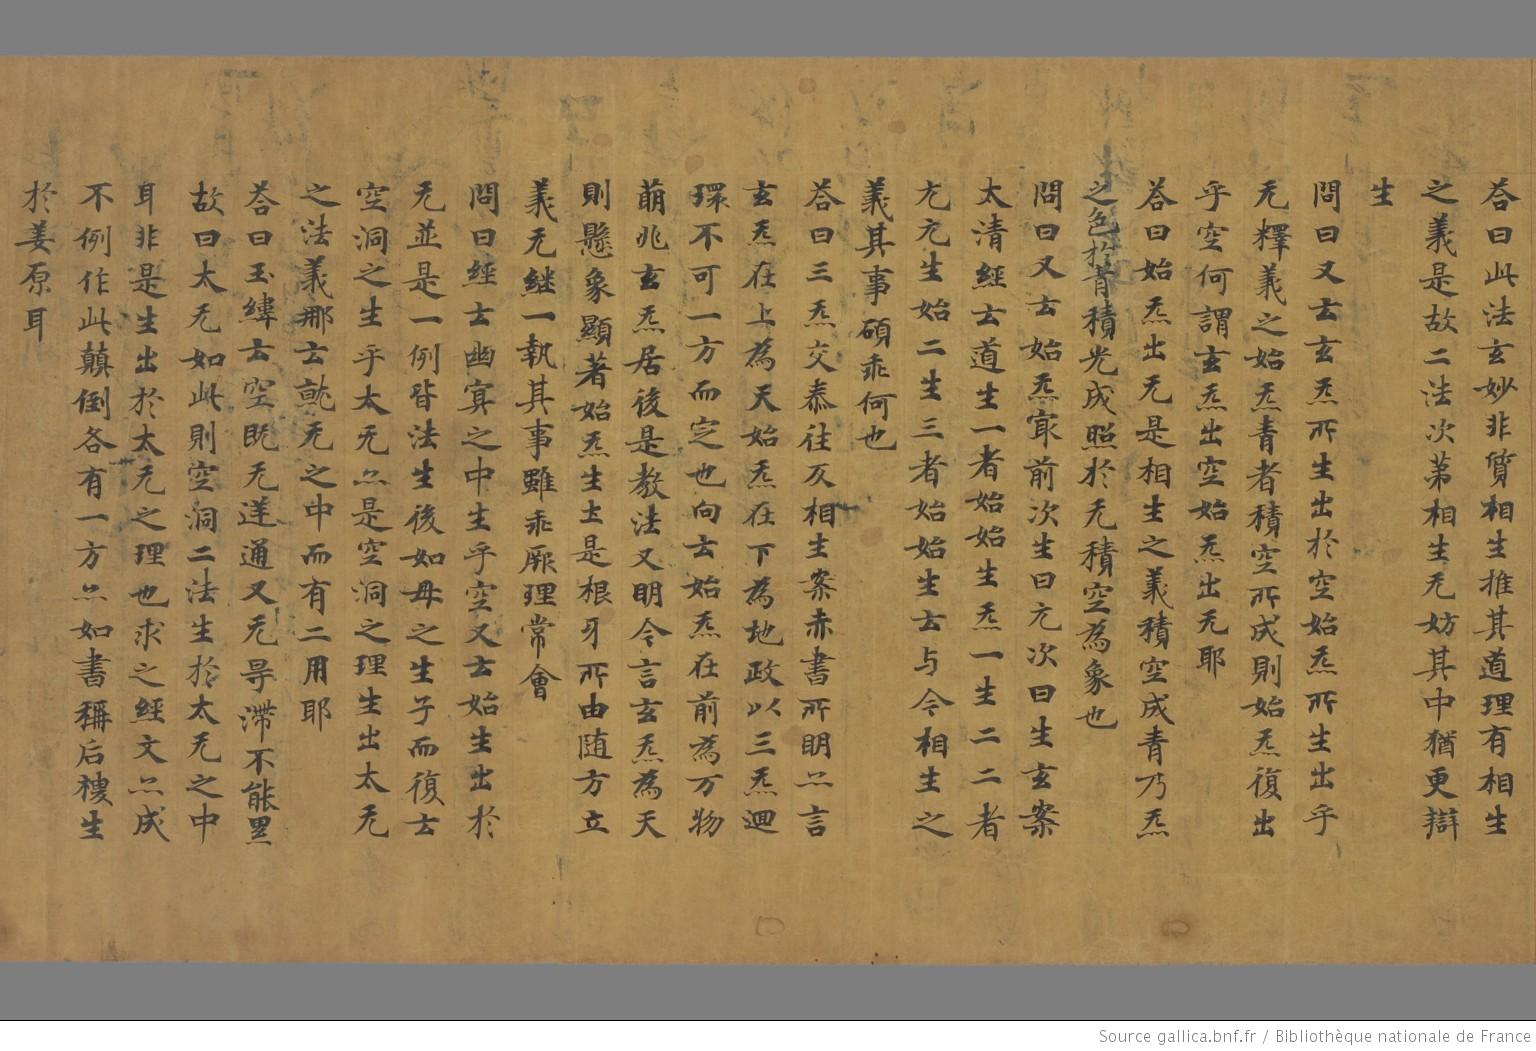 荅曰此法玄妙非質相生推其道理有相生
之義是故二法次第相生无妨其中猶更辯
生
問曰又云玄炁所生出於空始炁所生出乎
无釋義之始炁青者積空所成則始炁復出
乎空何謂玄炁出空始炁出无耶
荅曰始炁出无是相生之義積空成青乃炁
之色於青積光成照於无積空為象也
問曰又云始炁㝡前次生曰元次曰生玄案
太清經云道生一者始始生炁一生二二者
元元生始二生三者始始生云与今相生之
義其事碩乖何也
荅曰三炁交泰往反相生案赤書所明亦言
玄炁在上為天始炁在下為地政以三炁迴
環不可一方而定也向云始炁在前為万物
萠兆玄炁居後是教法又明今言玄炁為天
則懸象顯著始炁生土是根牙所由随方立
義无継一執其事雖乖厥理常會
問曰經云幽冥之中生乎空又云始生出於
无並是一例皆法生後如母之生子而復云
空洞之生乎太无亦是空洞之理生出太无
之法義那云就无之中而有二用耶
荅曰玉緯云空既无迬通又无㝵滯不能罣
故曰太无如此則空洞二法生於太无之中
耳非是生出於太无之理也求之經文亦成
不例作此顛倒各有一方亦如書稱后稷生
於姜原耳
Source gallica.bnf.fr / Bibliothèque nationale de France